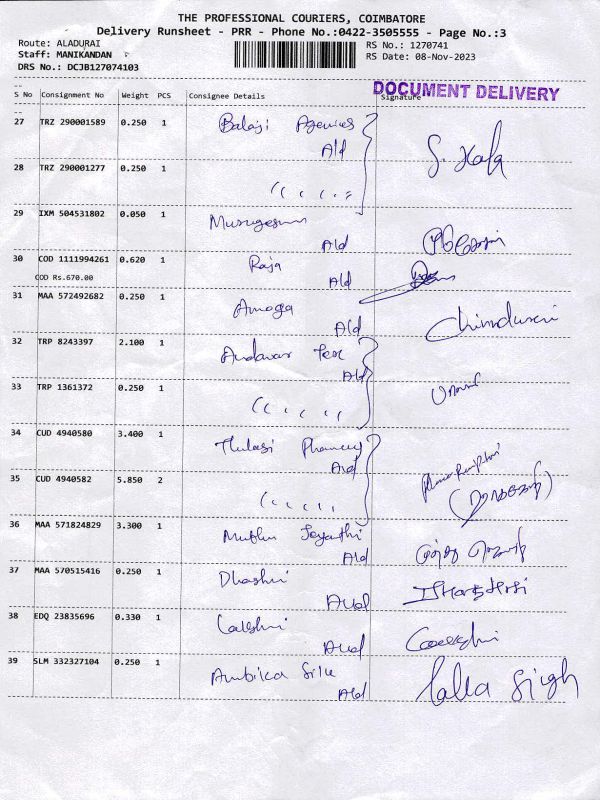 THE PROFESSIONAL COURIERS, COIMBATORE
Delivery Runsheet - PRR - Phone No.:0422-3505555 - Page No.:3
Route: ALADURAI RS No.: 1270741
Staff: MANIKANDAN RS Date: 08-Nov-2023
DRS No.: DCJB127074103
DOCUMENT DELIVERY
S No Consignment No Weight PCS Consignee Details Signature
27 TRZ 290001589 0.250 1 Balaji Agencies
Ald
28 TRZ 290001277 0.250 1
29 IXM 504531802 0.050 1 Murugesan
Ald
30 COD 1111994261 0.620 1 Raja
COD Rs.670.00 Ald
31 MAA 572492682 0.250 1 Amoga
Ald
32 TRP 8243397 2.100 1 Andavar Tex
Ald
33 TRP 1361372 0.250 1
34 CUD 4940580 3.400 1 Thulasi Pharmacy
Ald
35 CUD 4940582 5.850 2
36 MAA 571824829 3.300 1 Muthu Jeyanthi
Ald
37 MAA 570515416 0.250 1 Dharshni
Ald
38 EDQ 23835696 0.330 1 Lakshmi
Ald
39 SLM 332327104 0.250 1 Ambika Silk
Ald Lalla Singh